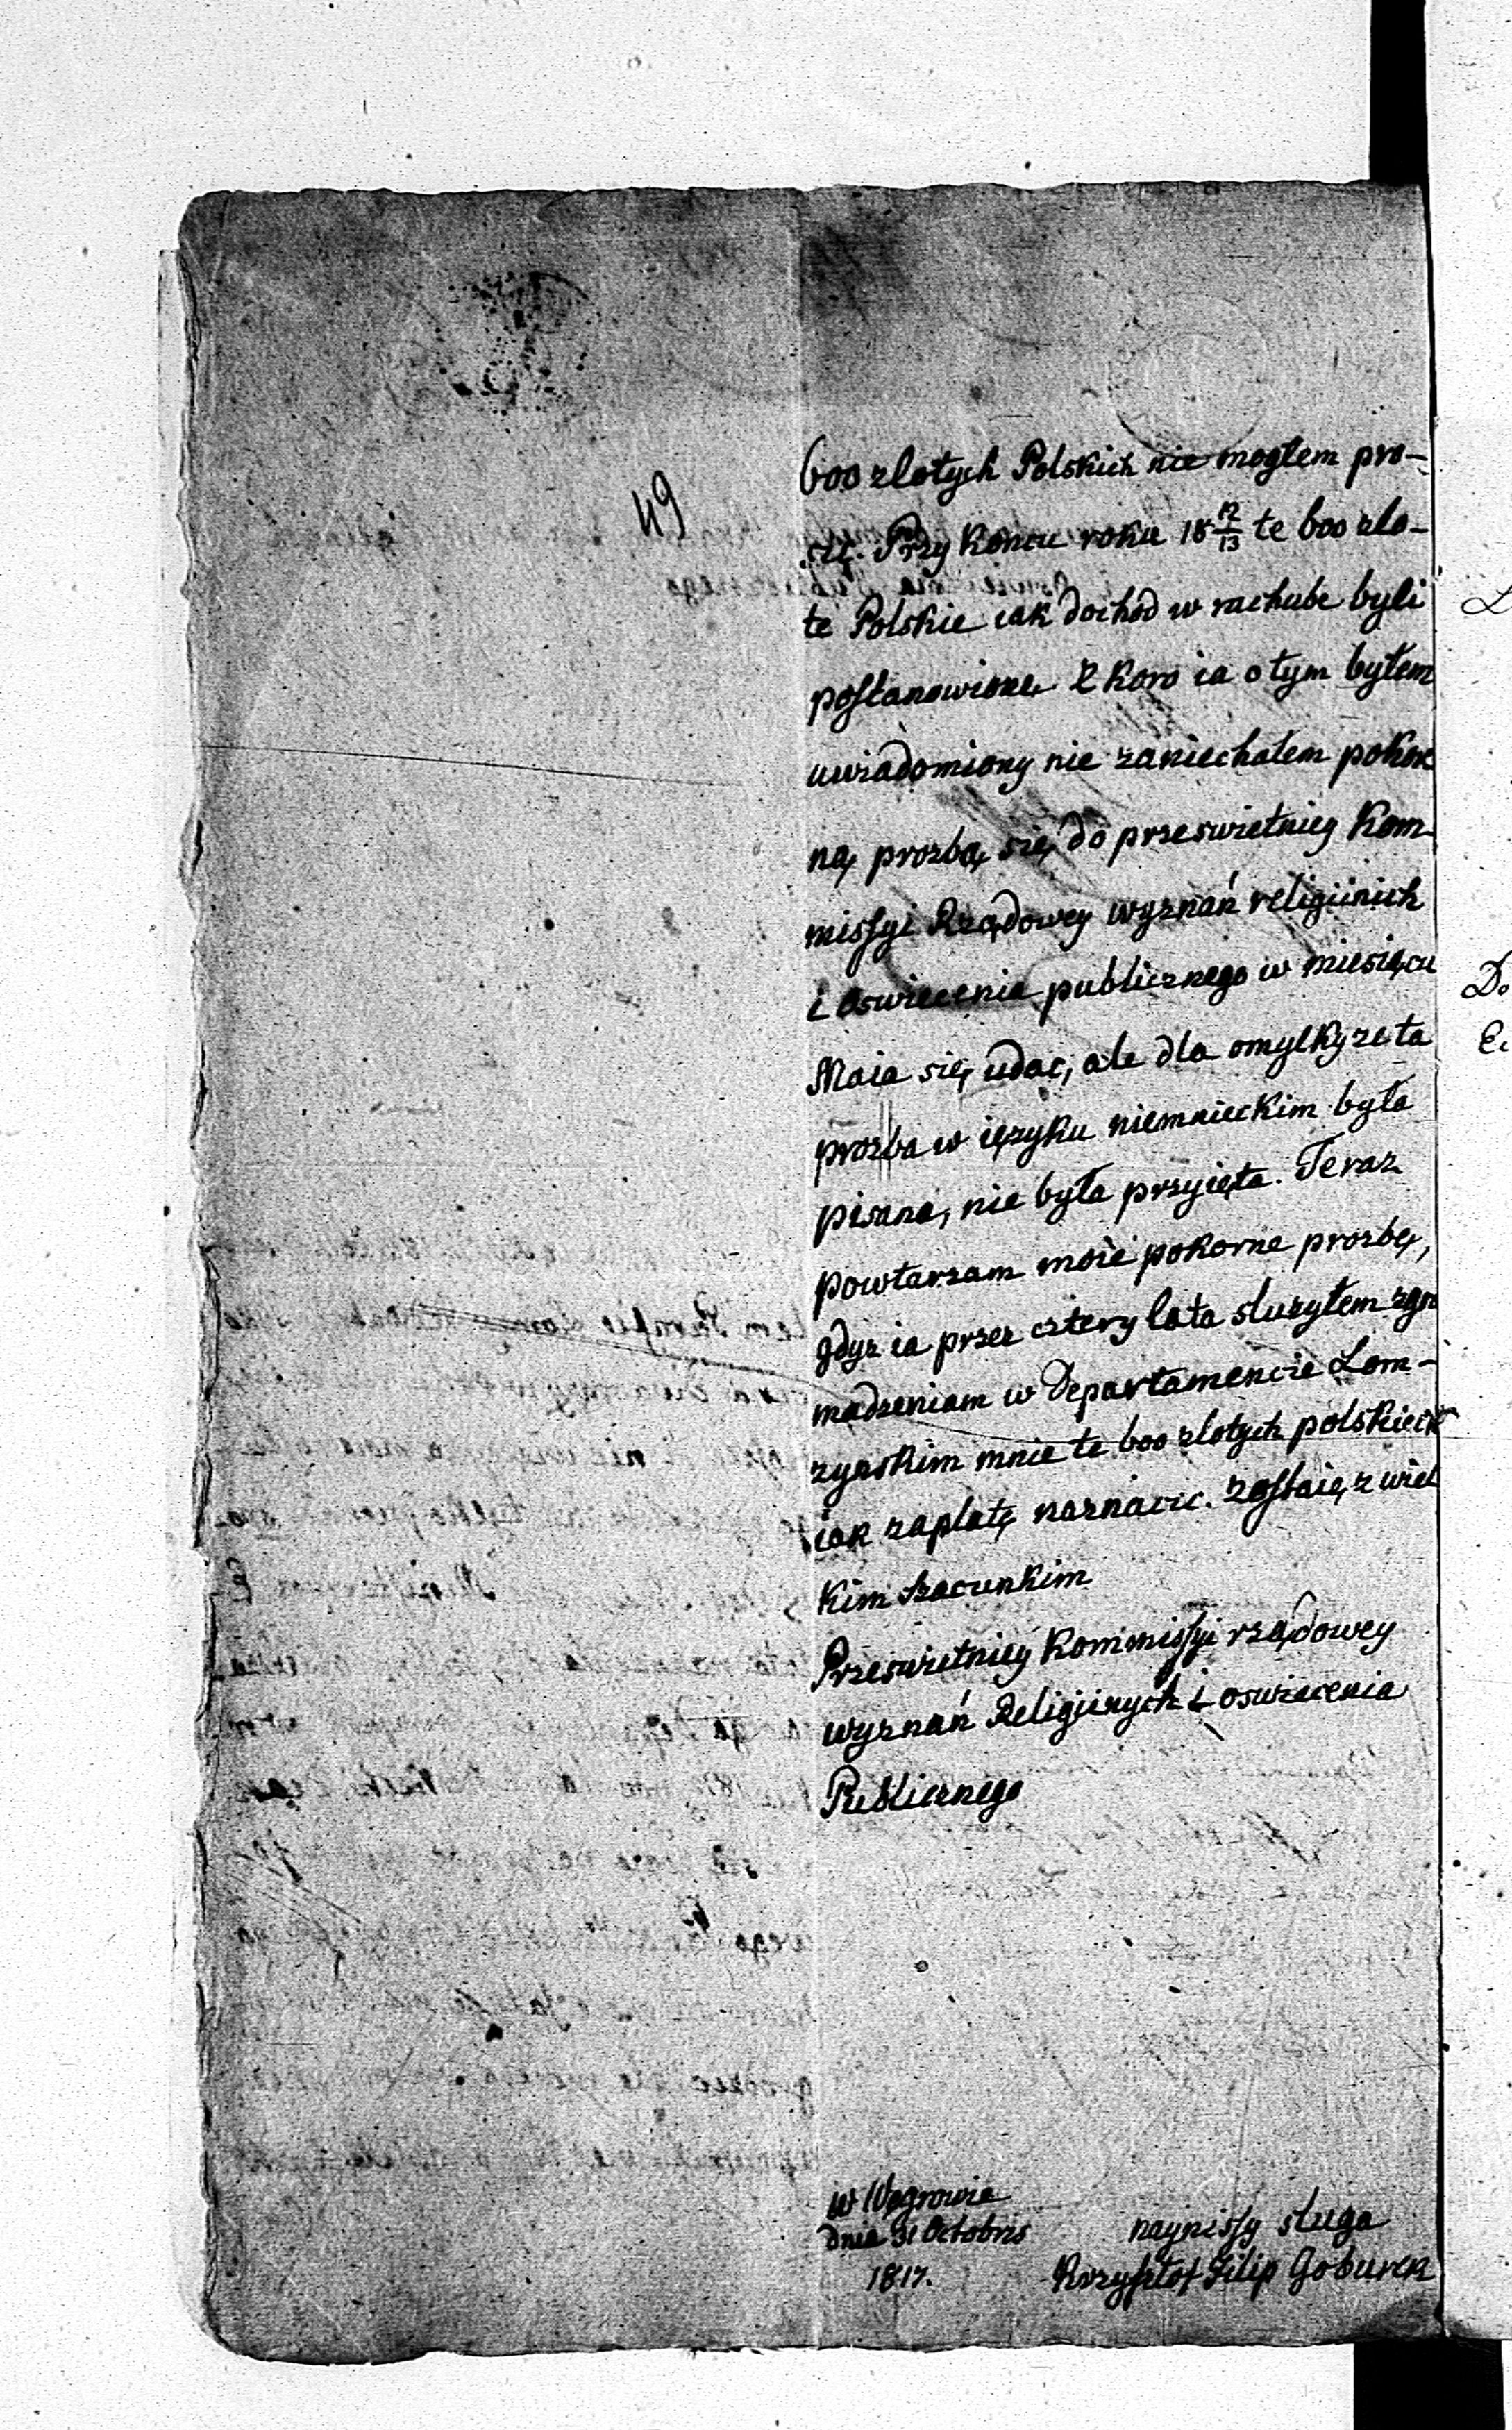 49
600 zlotych Polskich nie mogłem pro-
szę. Przy koncu roku 18 12/13 te 600 zlo-
te Polskie iak dochod w rachube byli
postanowione. Zkoro ia o tym byłem
uwiadomiony nie zaniechałem pokor
ną prozbą się do przeswietniey Kom-
missyi Rządowey wyznań religiinich
i oswiecenia publicznego w miesiącu
Maia się udac, ale dla omylky ze ta
prozba w ięzyku niemnieckim była
pisana, nie była przyięta. Teraz
powtarzam moie pokorne prozbę,
gdyz ia przez cztery lata sluzyłem zgro
madzeniam w Departamencie Lom-
zynskim mnie te 600 zlotych polskiech
iak zaplatę naznacic. Zostaię z wiel
kim szacunkim
Przeswietniey Kommissyi rządowey
wyznań Religiinych i oswiecenia
Publicznego
w Węgrowie
dnia 31 Octobris
1817.
naynissy sluga
Krzysztof Filip Goburek